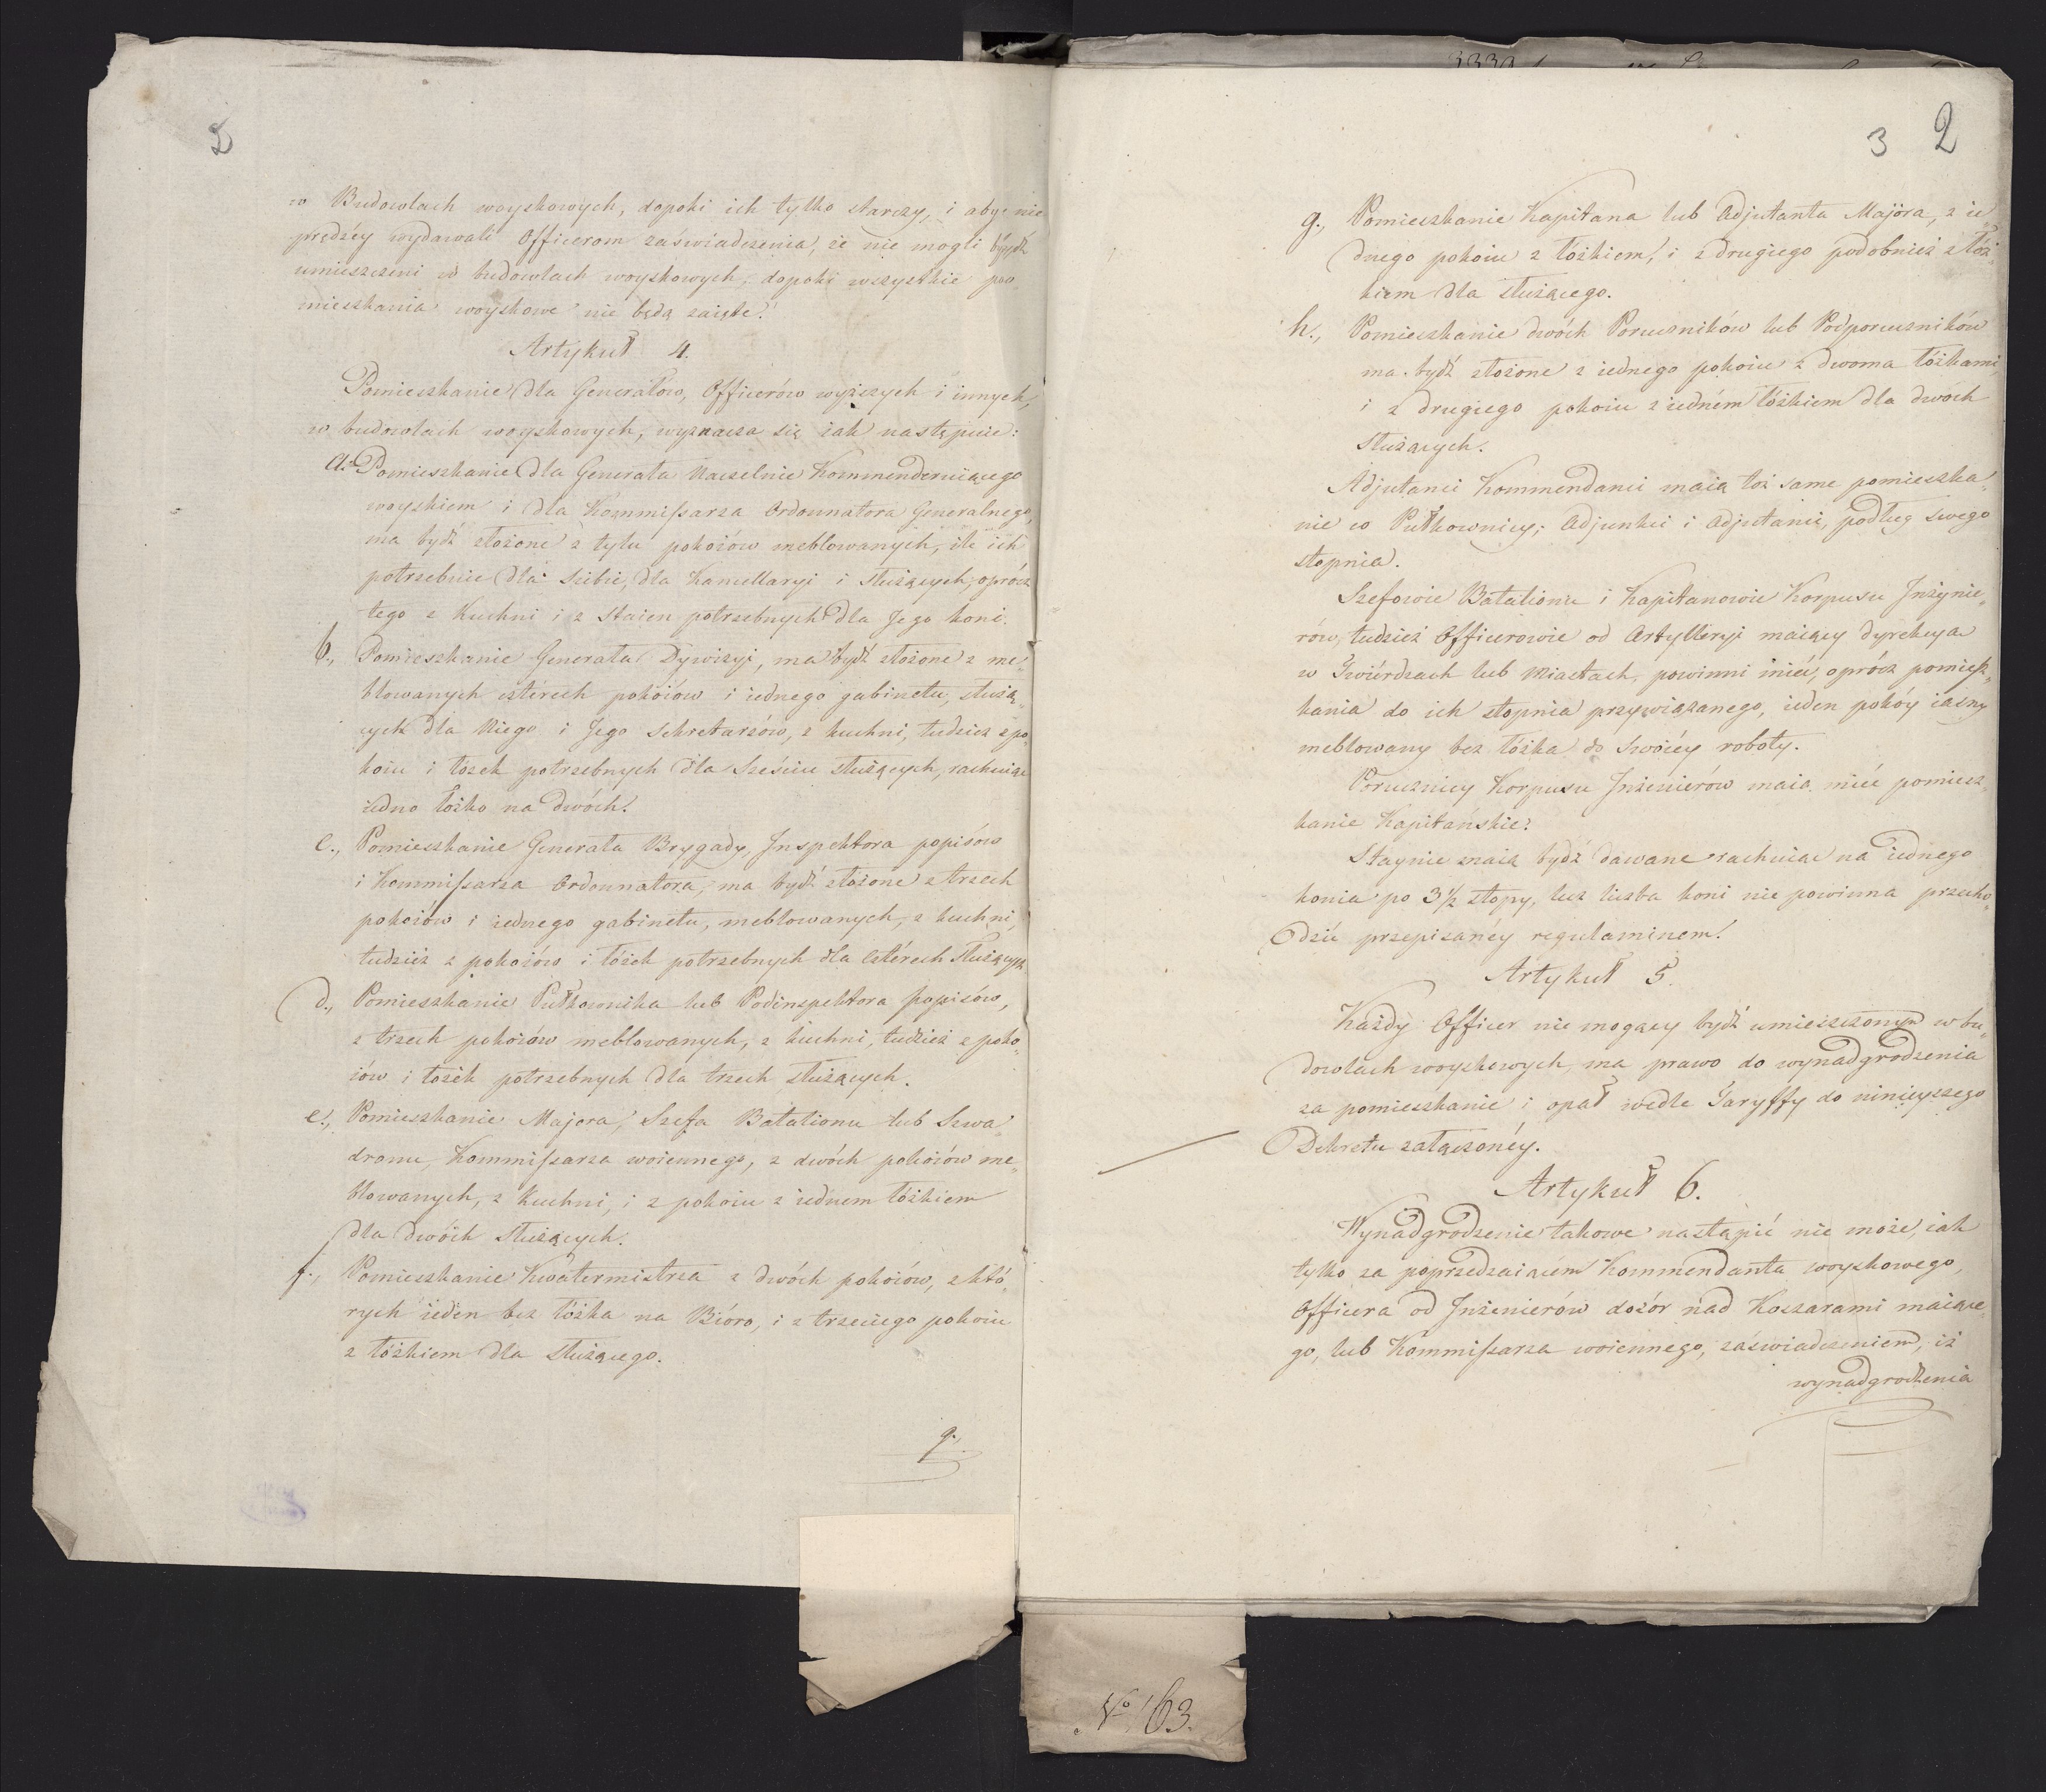 2
w Budowlach woyskowych, dopoki ich tylko starczy, i aby nie
prędzéy wydawali Officerom zaświadczenia, że nie mogli bydź
umieszczeni w budowlach woyskowych, dopoki wszystkie po
mieszkania woyskowe nie będą zaięte.
Artykuł 4.
Pomieszkanie dla Generałów, Officerów wyższych i innych,
w budowlach woyskowych, wyznacza się iak następuie:
a. Pomieszkanie dla Generała Naczelnie Kommenderuiącego
woyskiem i dla Kommissarza Ordonnatora Generalnego,
ma bydź złożone z tylu pokoiów meblowanych, ile ich
potrzebuie dla siebie, dla Kancellaryi i służących, oprócz
tego z Kuchni i z Staien potrzebnych dla Jego koni.
b., Pomieszkanie Generała Dywizyi, ma bydź złożone z me„
blowanych czterech pokoiów i iednego gabinetu, służą„
cych dla Niego i Jego Sekretarzów, z kuchni, tudzież z po„
koiu i łożek potrzebnych dla Sześciu służących, rachuiąc
iedno łóżko na dwóch.
c., Pomieszkanie Generała Brygady, Inspektora popisów
i Kommissarza Ordonnatora, ma bydź złożone z trzech
pokoiów i iednego gabinetu, meblowanych, z kuchni,
tudzież z pokoiów i łóżek potrzebnych dla cztérech służących
d., Pomieszkanie Pułkownika lub Podinspektora popisów,
z trzech pokoiów meblowanych, z kuchni, tudzież z poko„
iów i łożek potrzebnych dla trzech służących.
e., Pomieszkanie Majora, Szefa Batalionu lub Szwa
dronu, Kommissarza woiennego, z dwóch pokoiów me„
blowanych, z Kuchni, i z pokoiu z iednem łóżkiem
dla dwóch służących.
f., Pomieszkanie Kwatermistrza z dwóch pokoiów, z któ„
rych ieden bez łóżka na Bióro, i z trzeciego pokoiu
z łóżkiem dla służącego.
g.
3 2
g., Pomieszkanie Kapitana lub Adjutanta Majora, z ie
dnego pokoiu z łóżkiem, i z drugiego podobnież z łóż„
kiem dla służącego.
h., Pomieszkanie dwóch Poruczników lub Podporuczników
ma bydź złożone z iednego pokoiu z dwoma łóżkami,
i z drugiego pokoiu z iedném łóżkiem dla dwóch
służących.
Adjutanci Kommendanci maią toż same pomieszka„
nie co Pułkownicy; Adjunkci i Adjutanci, podług swego
stopnia.
Szefowie Batalionu i Kapitanowie Korpusu Inżynie„
rów, tudzież Officerowie od Artylleryi maiący dyrekcyą
w Twiérdzach lub Miastach, powinni mieć, oprócz pomiesz„
kania do ich stopnia przywiązanego, ieden pokóy iasny
meblowany bez łóżka do swoiéy roboty.
Porucznicy Korpusu Inżenierów maią mieć pomiesz„
kanie Kapitańskie.
Staynie maią bydź dawane rachuiąc na iednego
konia po 3 1/2 stopy, lecz liczba koni nie powinna przecho„
dzić przepisanéy regulaminem.
Artykuł 5.
Każdy Officer nie mogący bydź umieszczonym w bu„
dowlach woyskowych, ma prawo do wynadgrodzenia
za pomieszkanie i opał wedle Taryffy do ninieyszego
Dekretu załączonéy.
Artykuł 6.
Wynadgrodzenie takowe nastąpić nie może, iak
tylko za poprzedzaiącém Kommendanta woyskowego,
Officera od Inżenierów dozór nad Koszarami maiące„
go, lub Kommissarza woiennego, zaświadczeniem, iż
wynadgrodzenia
No. 63.